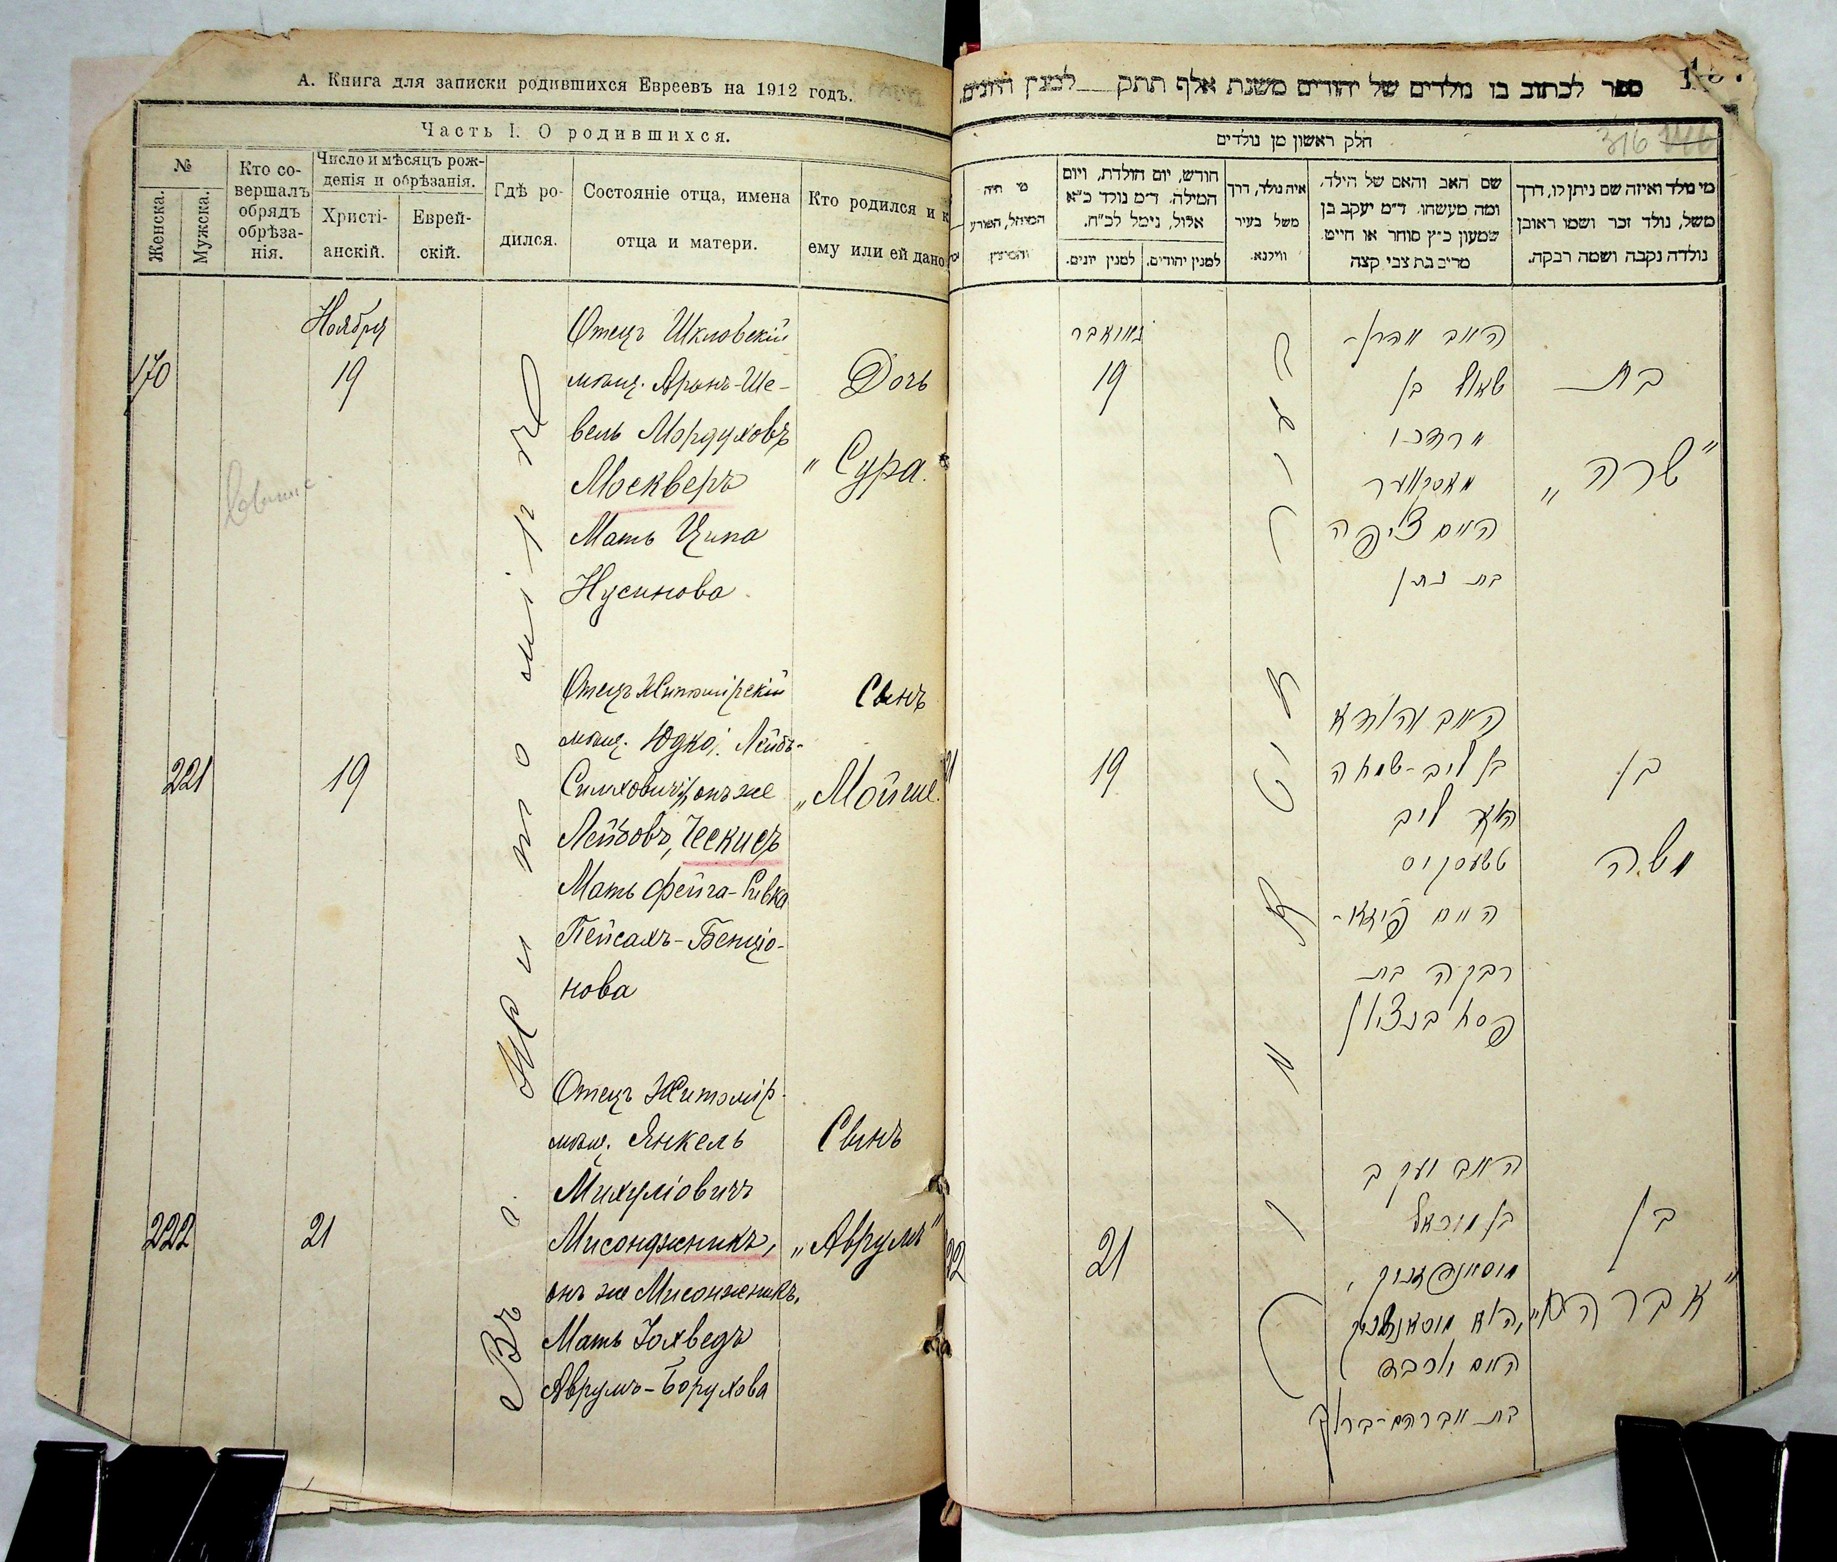 А. Книга для записки родившихся Евреевъ на 1912 годъ.
Часть I. О родившихся.
№
Женска.
Мужска.
Кто со-
вершалъ
обрядъ
обрѣза-
нія.
Число и мѣсяцъ рож-
денія и обрѣзанія.
Христі-
анскій.
Еврей-
скій.
Гдѣ ро-
дился.
Состояніе отца, имена
отца и матери.
Кто родился и к
ему или ей дано
Въ г. Житомірѣ
170
Ноября
19
Отецъ Шкловскій
мѣщ. Аронъ-Ше-
вель Мордуховъ
Москверъ
Мать Ципа
Нусинова
Дочь
„Сура.
221
19
Отецъ Житомірскій
мѣщ. Юдко, Лейбъ-
Симховичъ, онъ же
Лейбовъ, Ческисъ
Мать Фейга-Ривка
Пейсахъ-Бенціо-
нова
Сынъ
„Мойше.
222
21
Отецъ Житомір.
мѣщ. Янкель
Михуліовичъ
Мисонджникъ,
онъ же Мисонжникъ,
Мать Іохведъ
Аврумъ-Борухова
Сынъ
„Аврумъ"
ספר לכתוב בו נולדים של יהודים משנת אלף תתק לבנין היונים.
316 146
חלק ראשון מן נולדים
מי נולד ואיזה שם ניתן לו, דרך
משל, נולד זכר ושמו ראובן
נולדה נקבה ושמה רבקה.
שם האב והאם של הילד,
ומה מעשהו. ד״מ יעקב בן
שמעון כ״ץ סוחר או חייט
מרים בת צבי קצה
איה נולד, דרך
משל בעיר
ווילנא.
חודש, יום הולדת, ויום
המילה. ד״מ נולד כ״א
אלול, נימל לכ״ח.
למנין יהודים.
למנין יונים.
מי היה
המוהל, הפורע
והמוצץ.
נאוואבר
19
האב אהרן-
שאול בן
מרדכי
מאסקווער
האם ציפה
בת נתן
בת
"שרה"
21
19
האב יהודא
בן ליב-שמחה
הוא ליב
טשעסקיס
האם פייגא-
רבקה בת
פסח בנציון
בן
משה
22
21
האב יעקב
בן מיכאל
האם יוכבד
בת אברהם-ברוך
בן
"אברהם"